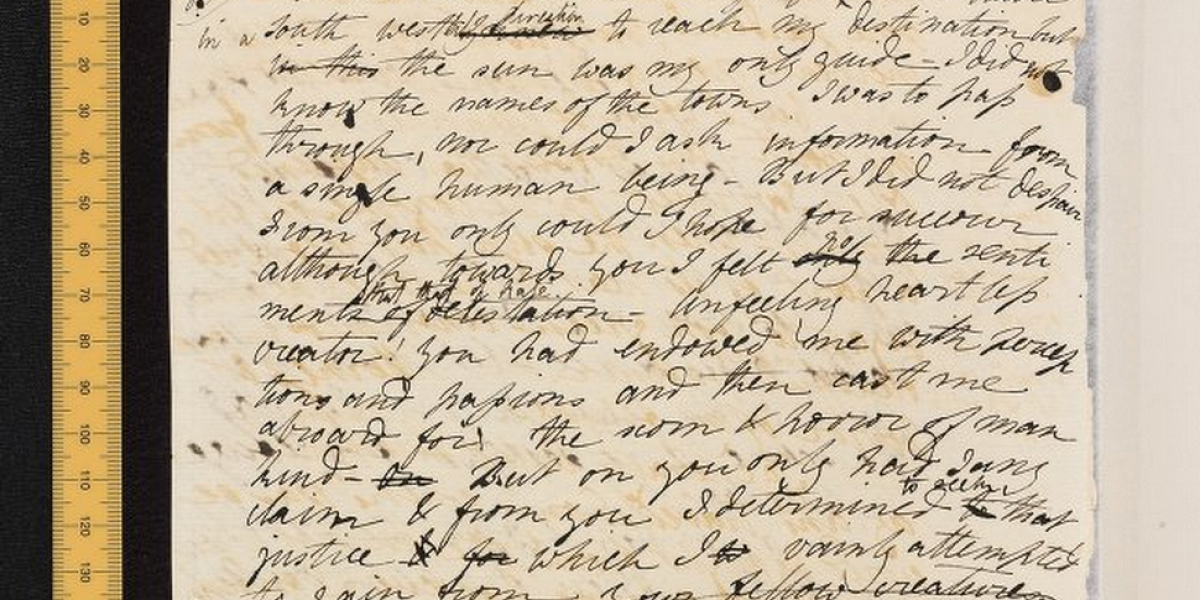 in a south westerly direction to reach my destination but
in this the sun was my only guide - I did not
know the names of the towns I was to pass
through, nor could I ask information from
a single human being - But I did not despair
From you only could I hope for succour
although towards you I felt only no the senti
ments of detestation but that of hate - Unfeeling heartless
creator! you had endowed me with percep
tions and passions and then cast me
abroad for the scorn & horror of man
kind - On But on you only had I any
claim & from you I determined to seek that
justice for which I vainly attempted
to gain from fellow creatures
10
20
30
40
50
60
70
80
90
100
110
120
130